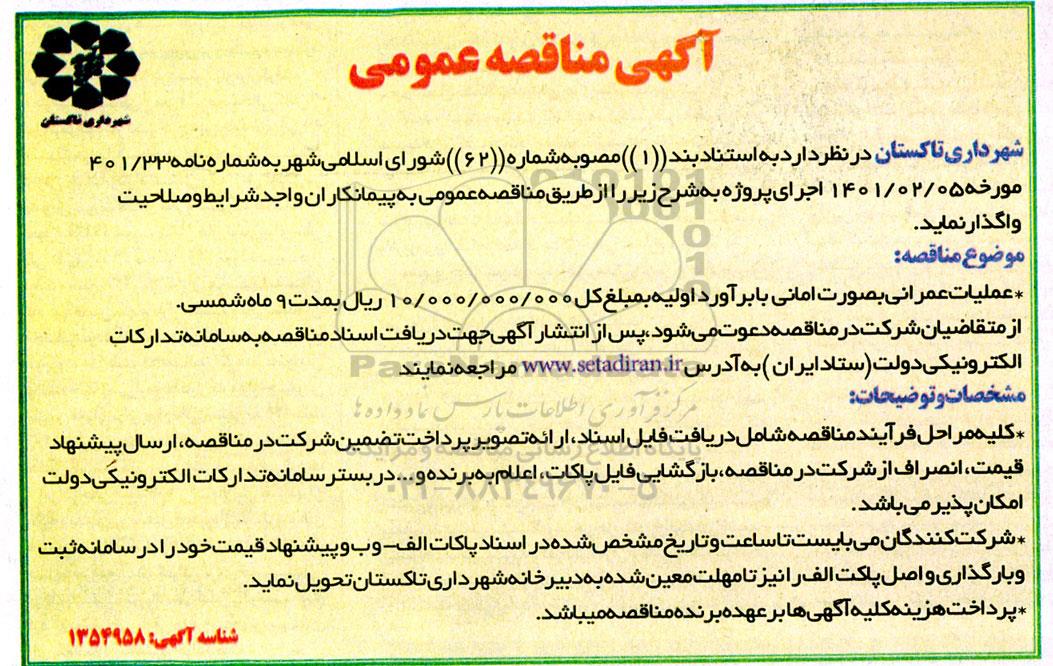 آگهی مناقصه عمومی
شهرداری تاکستان
شهرداری تاکستان در نظر دارد به استناد بند ((۱)) مصوبه شماره ((۶۲)) شورای اسلامی شهر به شماره نامه ۴۰۱/۳۳
مورخه ۱۴۰۱/۰۲/۰۵ اجرای پروژه به شرح زیر را از طریق مناقصه عمومی به پیمانکاران واجد شرایط و صلاحیت
واگذار نماید.
موضوع مناقصه:
*عملیات عمرانی بصورت امانی با برآورد اولیه بمبلغ کل ۱۰/۰۰۰/۰۰۰/۰۰۰ ریال بمدت ۹ ماه شمسی.
از متقاضیان شرکت در مناقصه دعوت می شود، پس از انتشار آگهی جهت دریافت اسناد مناقصه به سامانه تدارکات
الکترونیکی دولت (ستاد ایران) به آدرس www.setadiran.ir مراجعه نمایند
مشخصات و توضیحات:
*کلیه مراحل فرآیند مناقصه شامل دریافت فایل اسناد، ارائه تصویر پرداخت تضمین شرکت در مناقصه، ارسال پیشنهاد
قیمت، انصراف از شرکت در مناقصه، بازگشایی فایل پاکات، اعلام به برنده و... در بستر سامانه تدارکات الکترونیکی دولت
امکان پذیر می باشد.
*شرکت کنندگان می بایست تا ساعت و تاریخ مشخص شده در اسناد پاکات الف- و ب و پیشنهاد قیمت خود را در سامانه ثبت
و بارگذاری و اصل پاکت الف را نیز تا مهلت معین شده به دبیرخانه شهرداری تاکستان تحویل نماید.
*پرداخت هزینه کلیه آگهی ها بر عهده برنده مناقصه میباشد.
شناسه آگهی: ۱۳۵۴۹۵۸
ParsNamadData
مرکز فرآوری اطلاعات پارس نماد داده ها
پایگاه اطلاع رسانی مناقصه و مزایده
۰۲۱-۸۸۳۴۹۶۷۰-۵